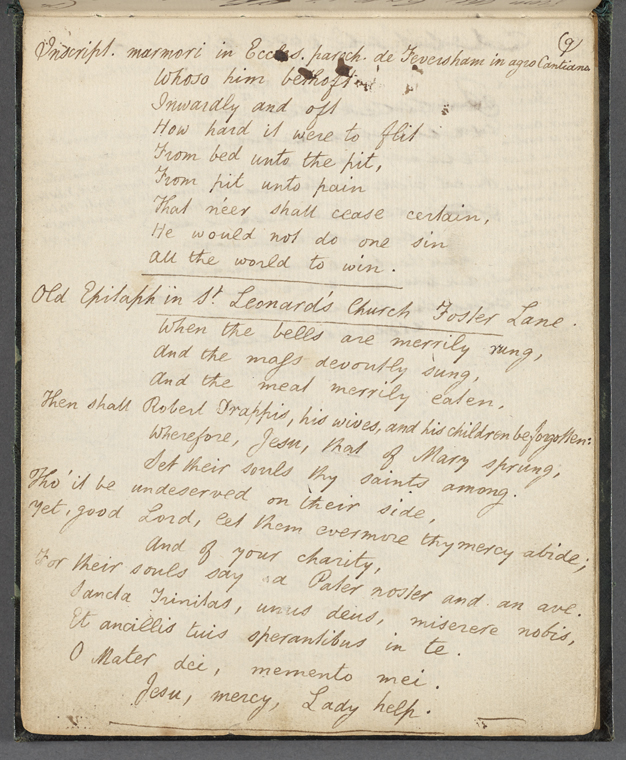 (9)
Inscript. marmori in Eccles. paroch. de Feversham in agro Cantiano
Whoso him bethoft
Inwardly and oft
How hard it were to flit
From bed unto the pit,
From pit unto pain
That ne'er shall cease certain,
He would not do one sin
All the world to win.
Old Epitaph in St. Leonard's Church Foster Lane.
When the bells are merrily rung,
And the mass devoutly sung,
And the meat merrily eaten,
Then shall Robert Trappis, his wives, and his children be forgotten:
Wherefore, Jesu, that of Mary sprung,
Set their souls thy saints among.
Tho' it be undeserved on their side,
Yet, good Lord, let them evermore thy mercy abide;
And of your charity,
For their souls say a Pater noster and an ave.
Sancta Trinitas, unus deus, miserere nobis,
Et ancillis tuis sperantibus in te.
O Mater dei, memento mei.
Jesu, mercy, Lady help.